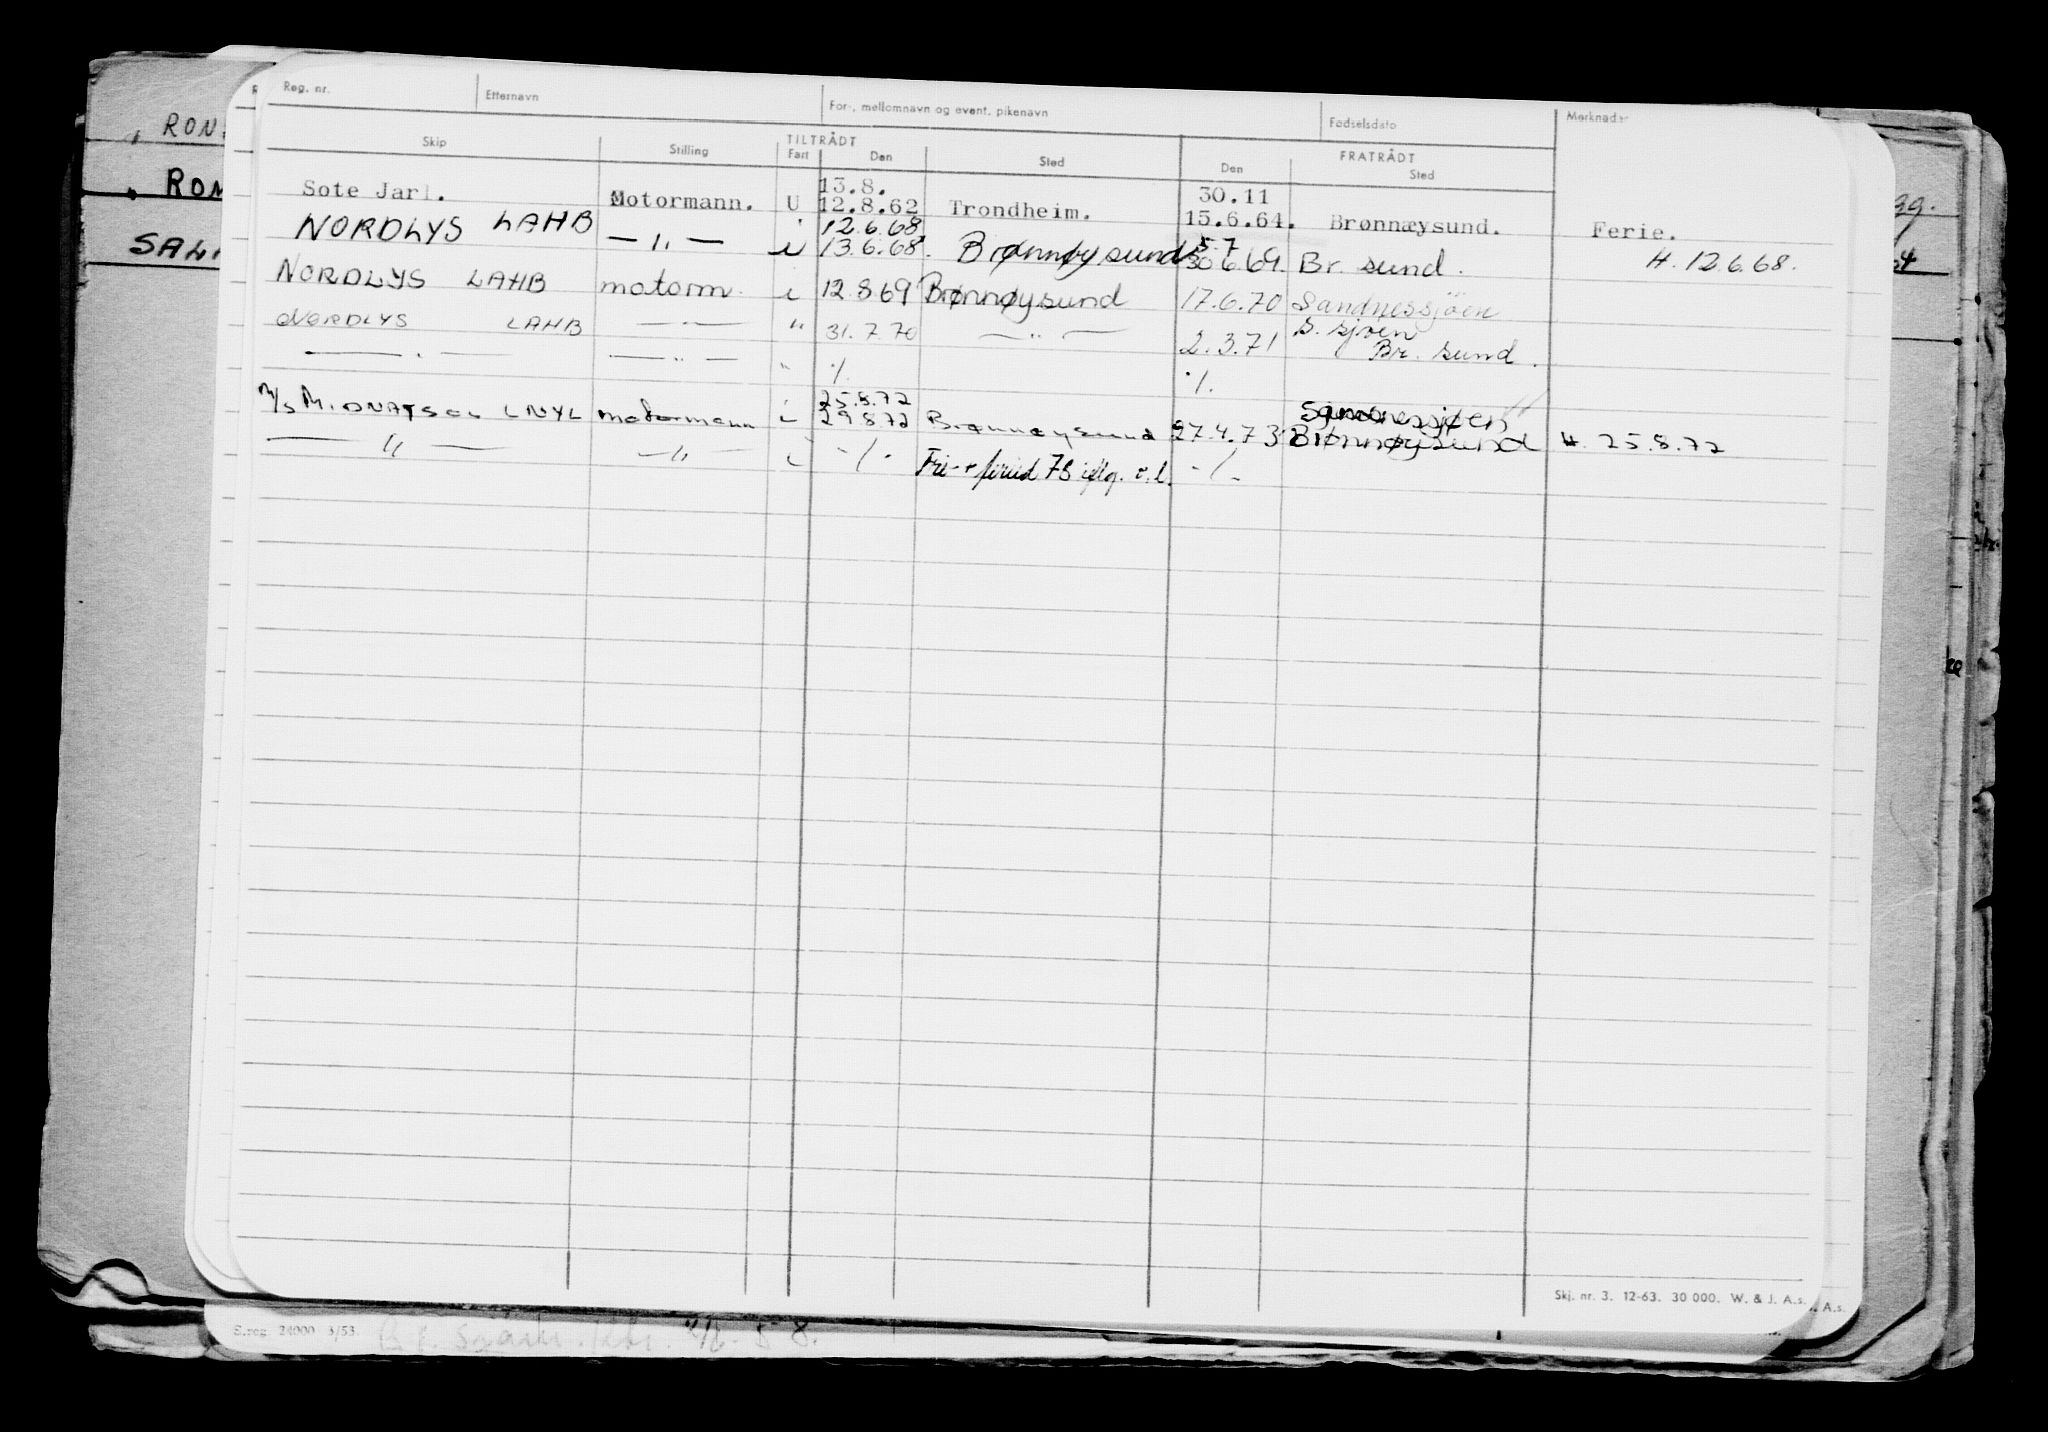 Reg. nr. Etternavn For-, mellomnavn og event. pikenavn Fødselsdato Merknader
TILTRÅDT FRATRÅDT
Skip Stilling Fart Den Sted Den Sted
13.8. 30.11
Sote Jarl. Motormann. U 12.8.62 Trondheim. 15.6.64. Brønnæysund. Ferie.
12.6.68 5.7
NORDLYS LAHB — " — i 13.6.68. Brønnøysund 30.6.69. Br. sund. H. 12.6.68.
NORDLYS LAHB motorm. i 12.8.69 Brønnøysund 17.6.70 Sandnessjöen
S. sjøen
NORDLYS LAHB — " — " 31.7.70 — " — 2.3.71 Br. sund.
— " — — " — " ./. ./.
25.8.72 Sandnessjøen
M/S MIDNATSOL LNYL motormann i 29.8.72 Brønnøysund 27.4.73 Brønnøysund H. 25.8.72
— " — — " — i -/- Fri- + feried 73 iflg. r.l. -/-
RON
RON
SAL
Skj. nr. 3. 12-63. 30 000. W. & J. A.s.
A.s.
S.reg. 24000 3/53